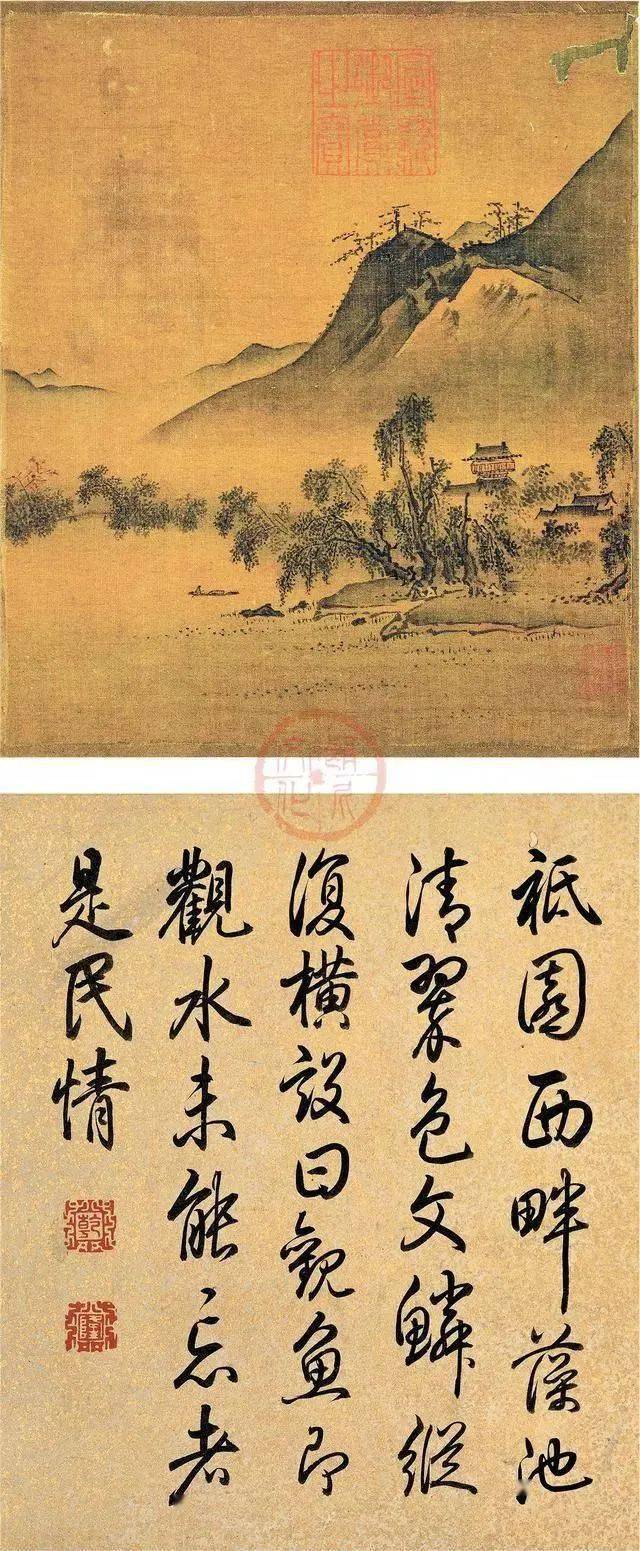 祗園西畔藻池
清翠色文鱗縱
復橫設曰觀魚即
觀水未能忘者
是民情